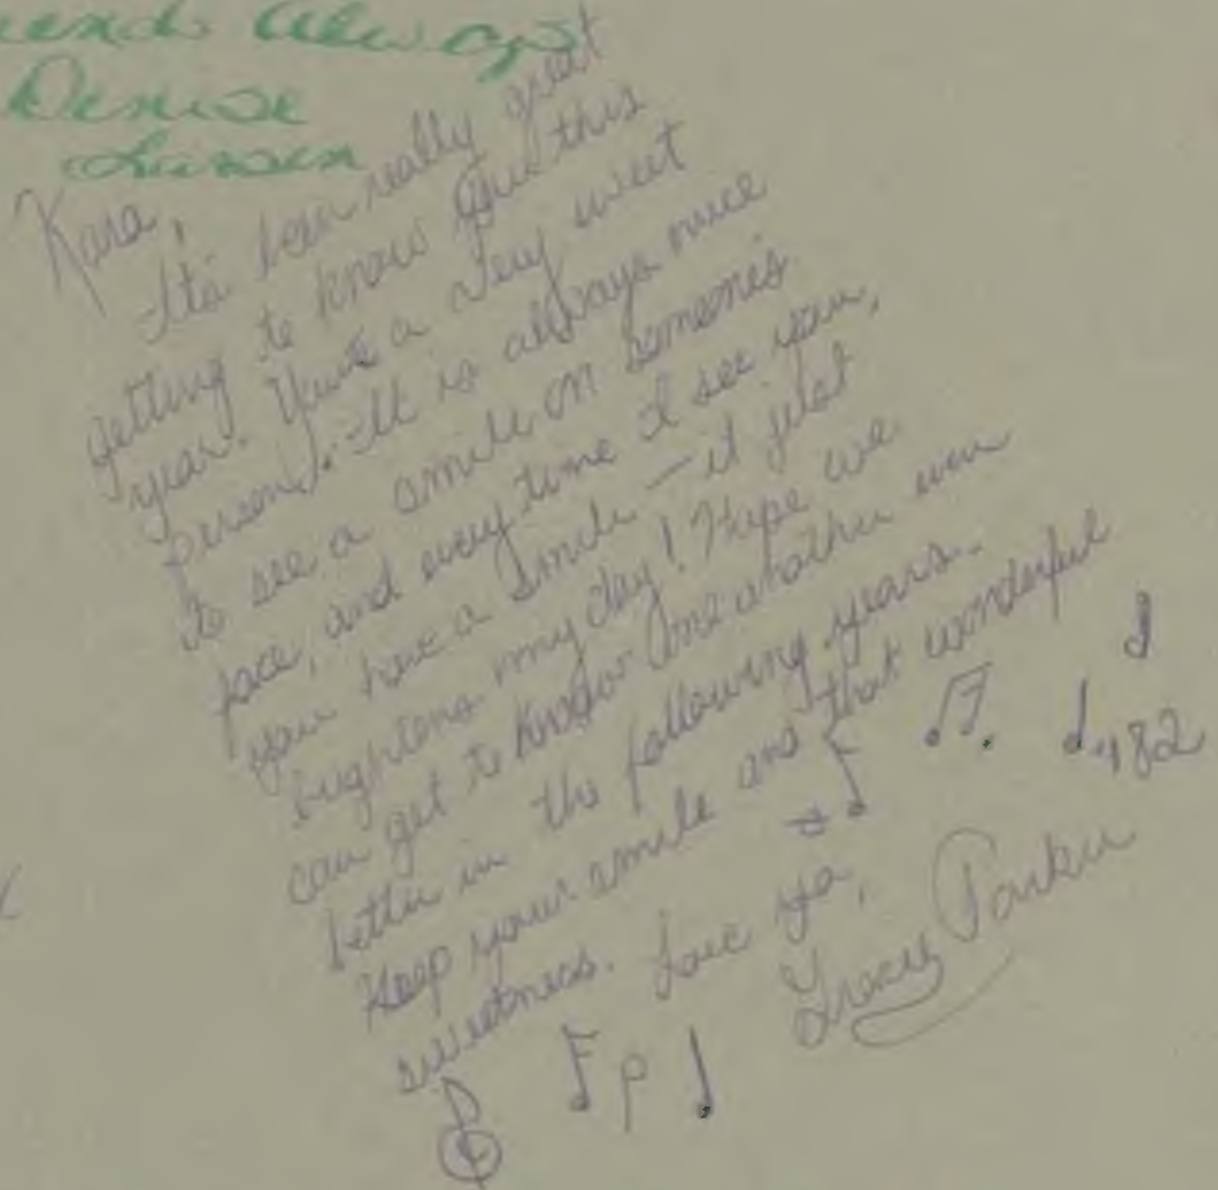 Always
Denise
Kara,
It's been really great
getting to know you this
year. You're a very sweet
person. It is always nice
to see a smile on someone's
face, and every time I see you,
you have a smile — it just
brightens my day! Hope we
can get to know one another even
better in the following years.
Keep your smile and that wonderful
sweetness. Love ya,
Tracy Parker
'82